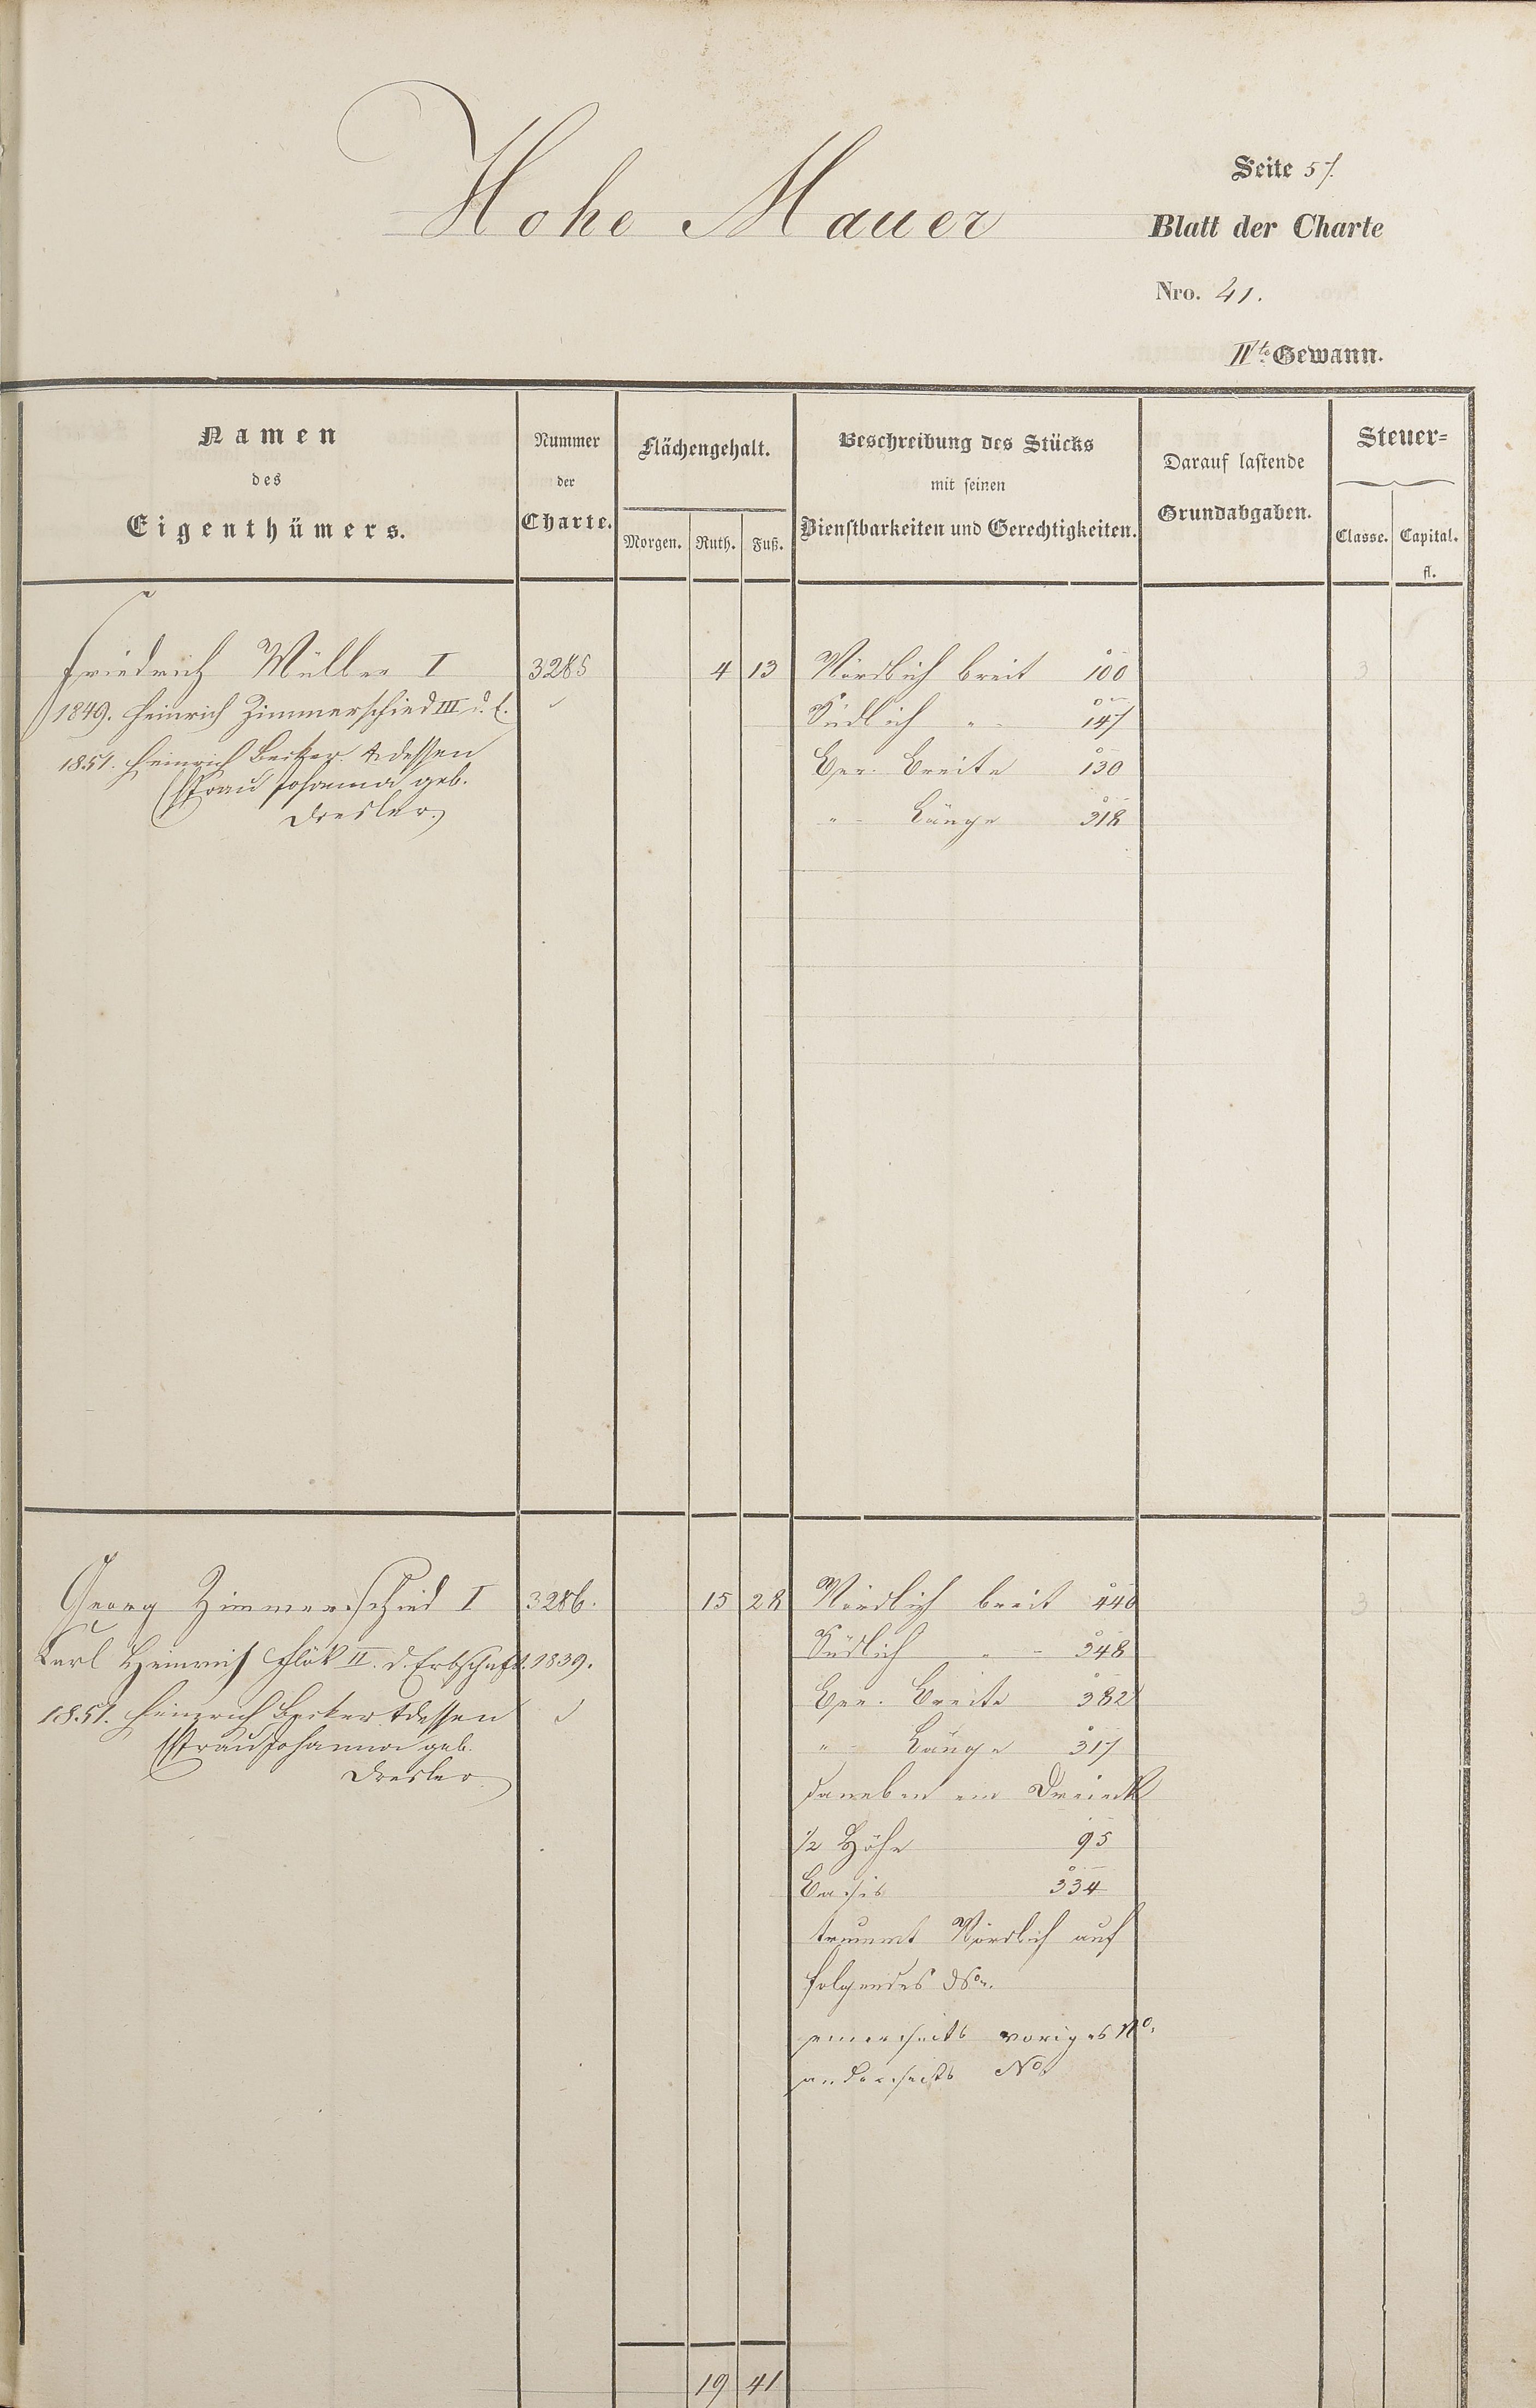 Hohe Mauer
Seite 51.
Blatt der Charte
Nro. 41.
IIte Gewann.
Namen
des
Eigenthümers.
Nummer
der
Charte.
Flächengehalt.
Morgen. Ruth. Fuß.
Beschreibung des Stücks
mit seinen
Dienstbarkeiten und Gerechtigkeiten.
Darauf lastende
Grundabgaben.
Steuer-
Classe. Capital.
fl.
Friedrich Müller I 3285 4 13 Nördlich breit 100 3
1849. Heinrich Zimmerschied III Südlich " 147
1851. Heinrich Becker & dessen Ger. Breite 130
Frau Johanna geb.
Dresler. " Länge 318
Georg Zimmerschied I 3286. 15 28 Nördlich breit 440 3
Karl Heinrich Flök II. d. Erbschaft. 1839. Südlich " 348
1851. Heinrich Becker & dessen Ger. Breite 382
Frau Johanna geb. " Länge 317
Dresler
daneben ein Dreieck
1/2 Höhe 95
Basis 334
trummt Nördlich auf
folgendes No.
einerseits voriges No.
anderseits No.
19 41